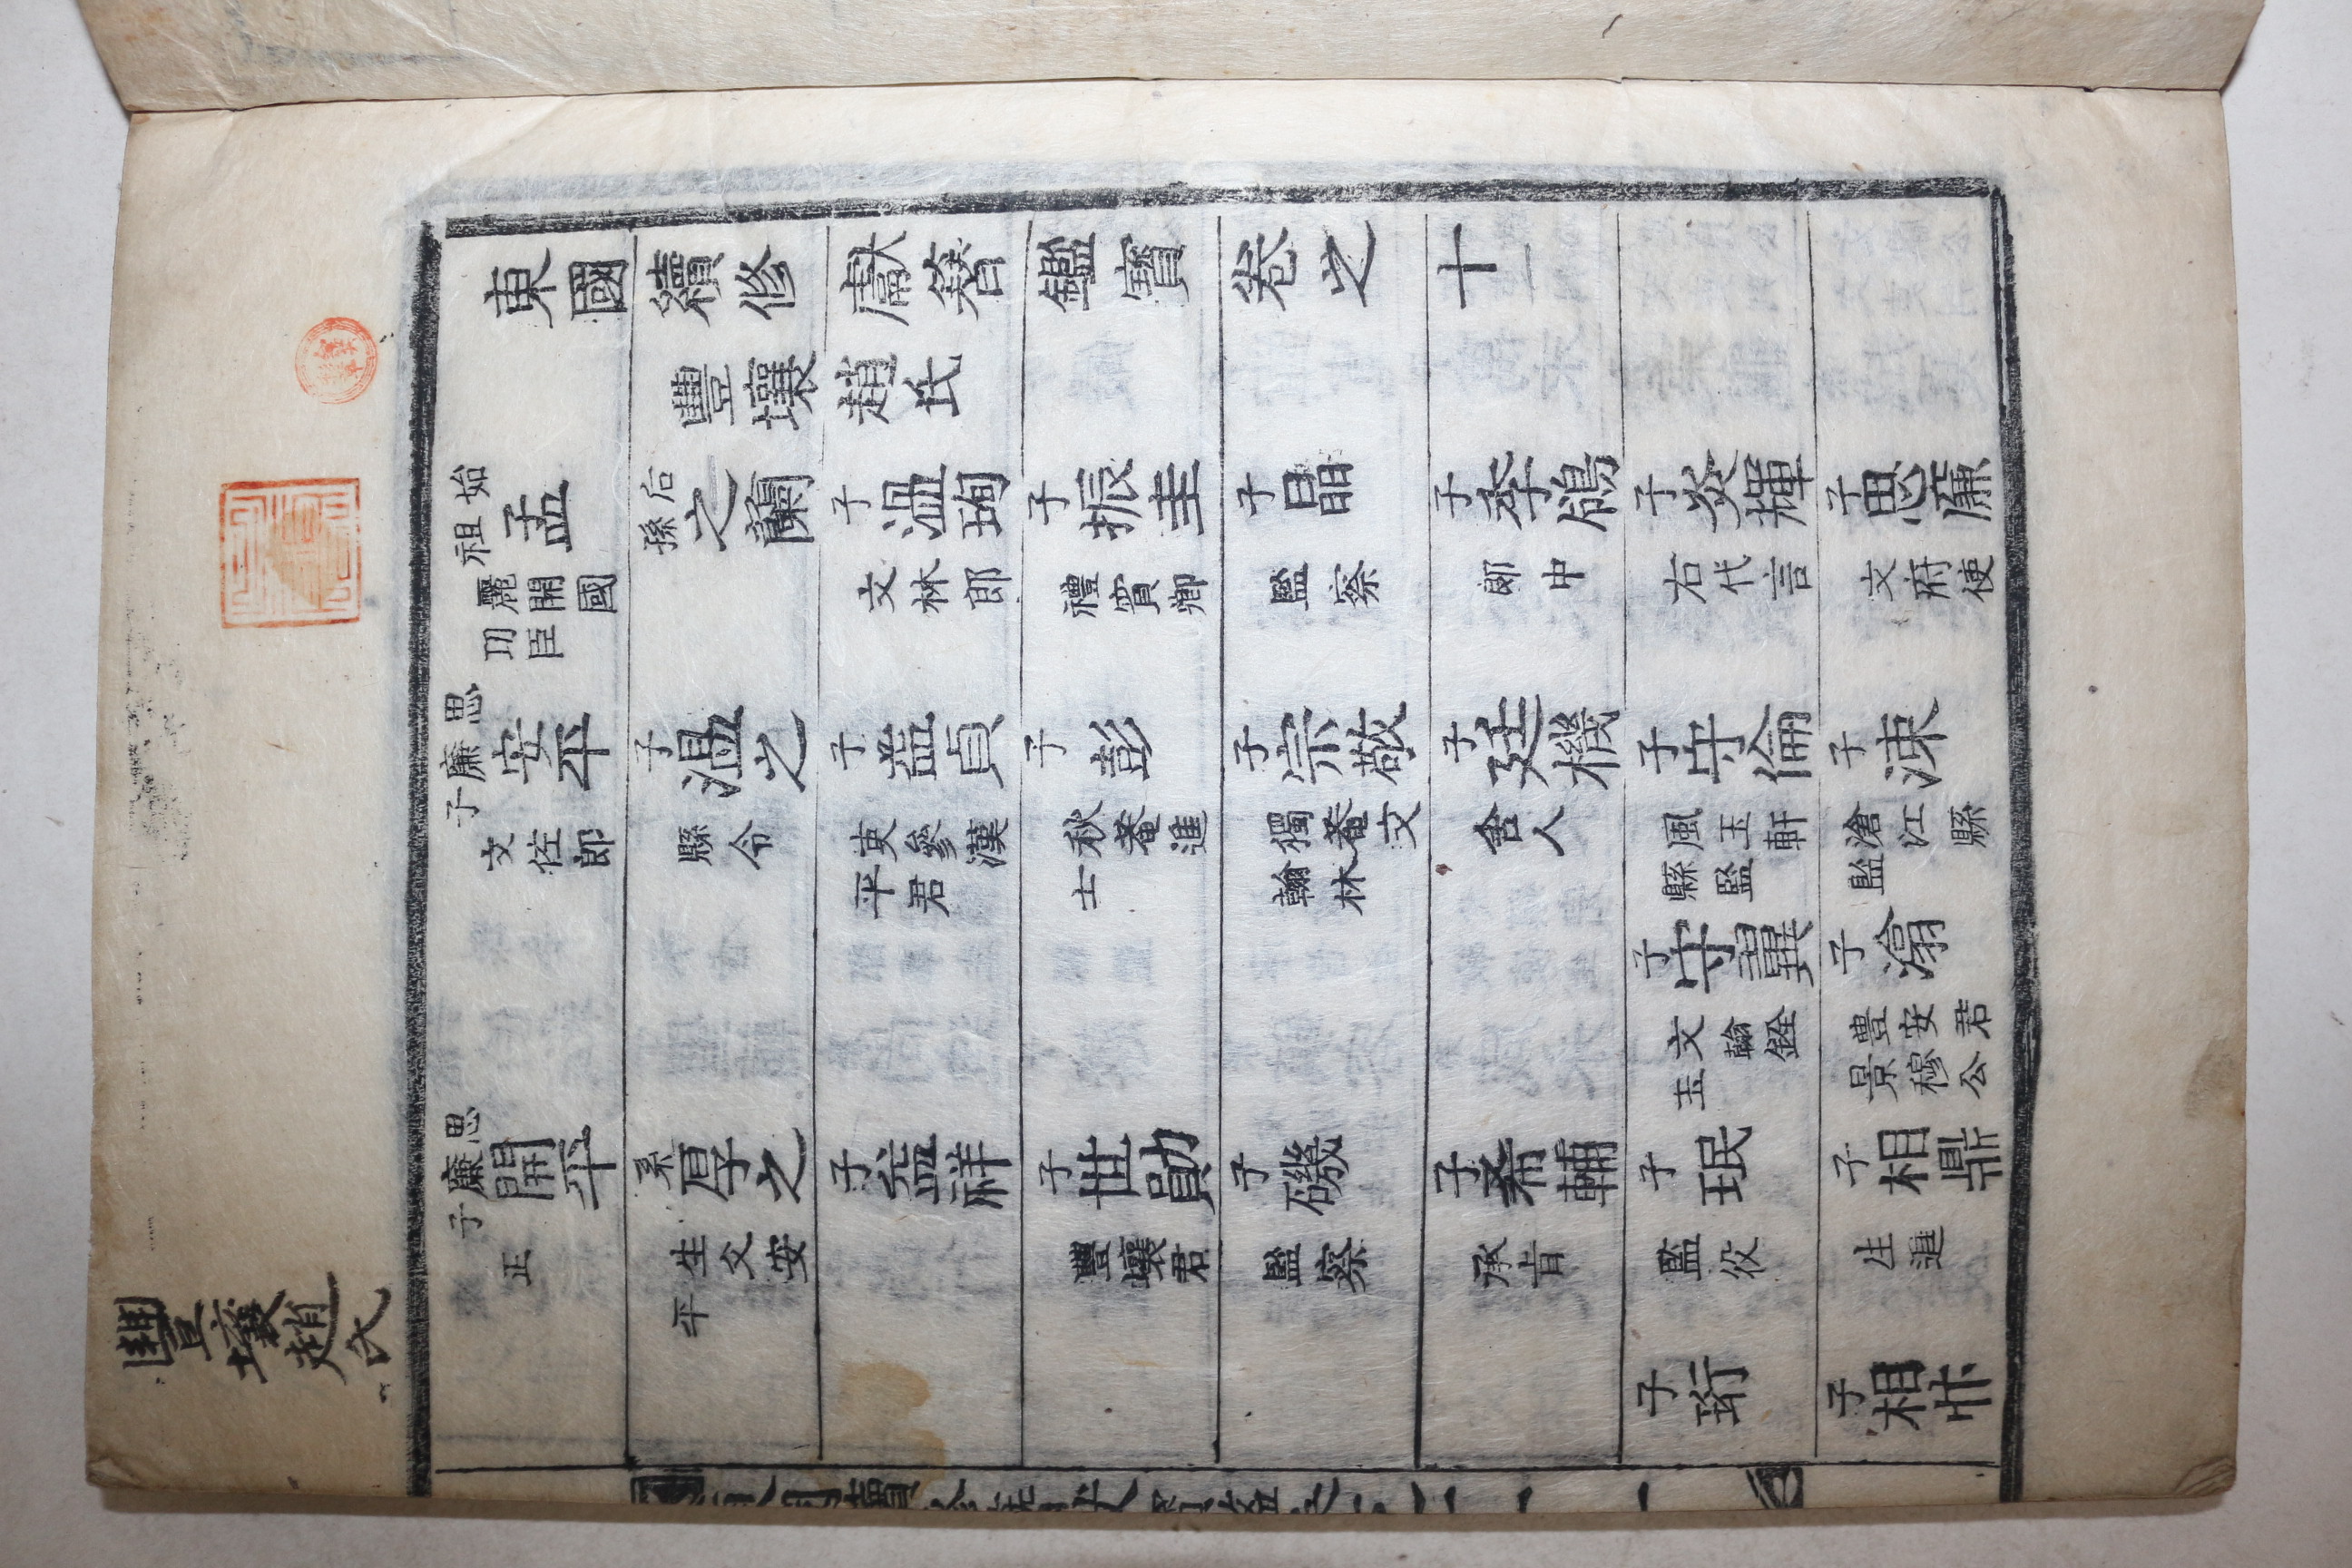 東國續修獻簪鑑寶卷之十
豐壤趙氏
始祖 孟 麗開國功臣
后孫 之蘭
子 溫珣 文林郎
子 振圭 禮賓卿
子 晶 監察
子 季鴒 郎中
子 炎輝 右代言
子 思廉 文府使
思廉子 安平 文佐郎
子 溫之 縣令
子 益貞 吏參漢平君
子 彭 秋菴進士
子 宗敬 獨菴文翰林
子 廷機 舍人
子 守倫 風玉軒縣監
子 涑 滄江縣監
子 守翼 文翰銓玉
子 滃 豊安君景穆公
思廉子 開平 正
系 厚之 生父安平
子 益祥
子 世勛 豐壤君
子 磯 監察
子 希輔 承旨
子 珉 監役
子 相鼎 生進
子 珩
子 相忭
豐壤趙氏